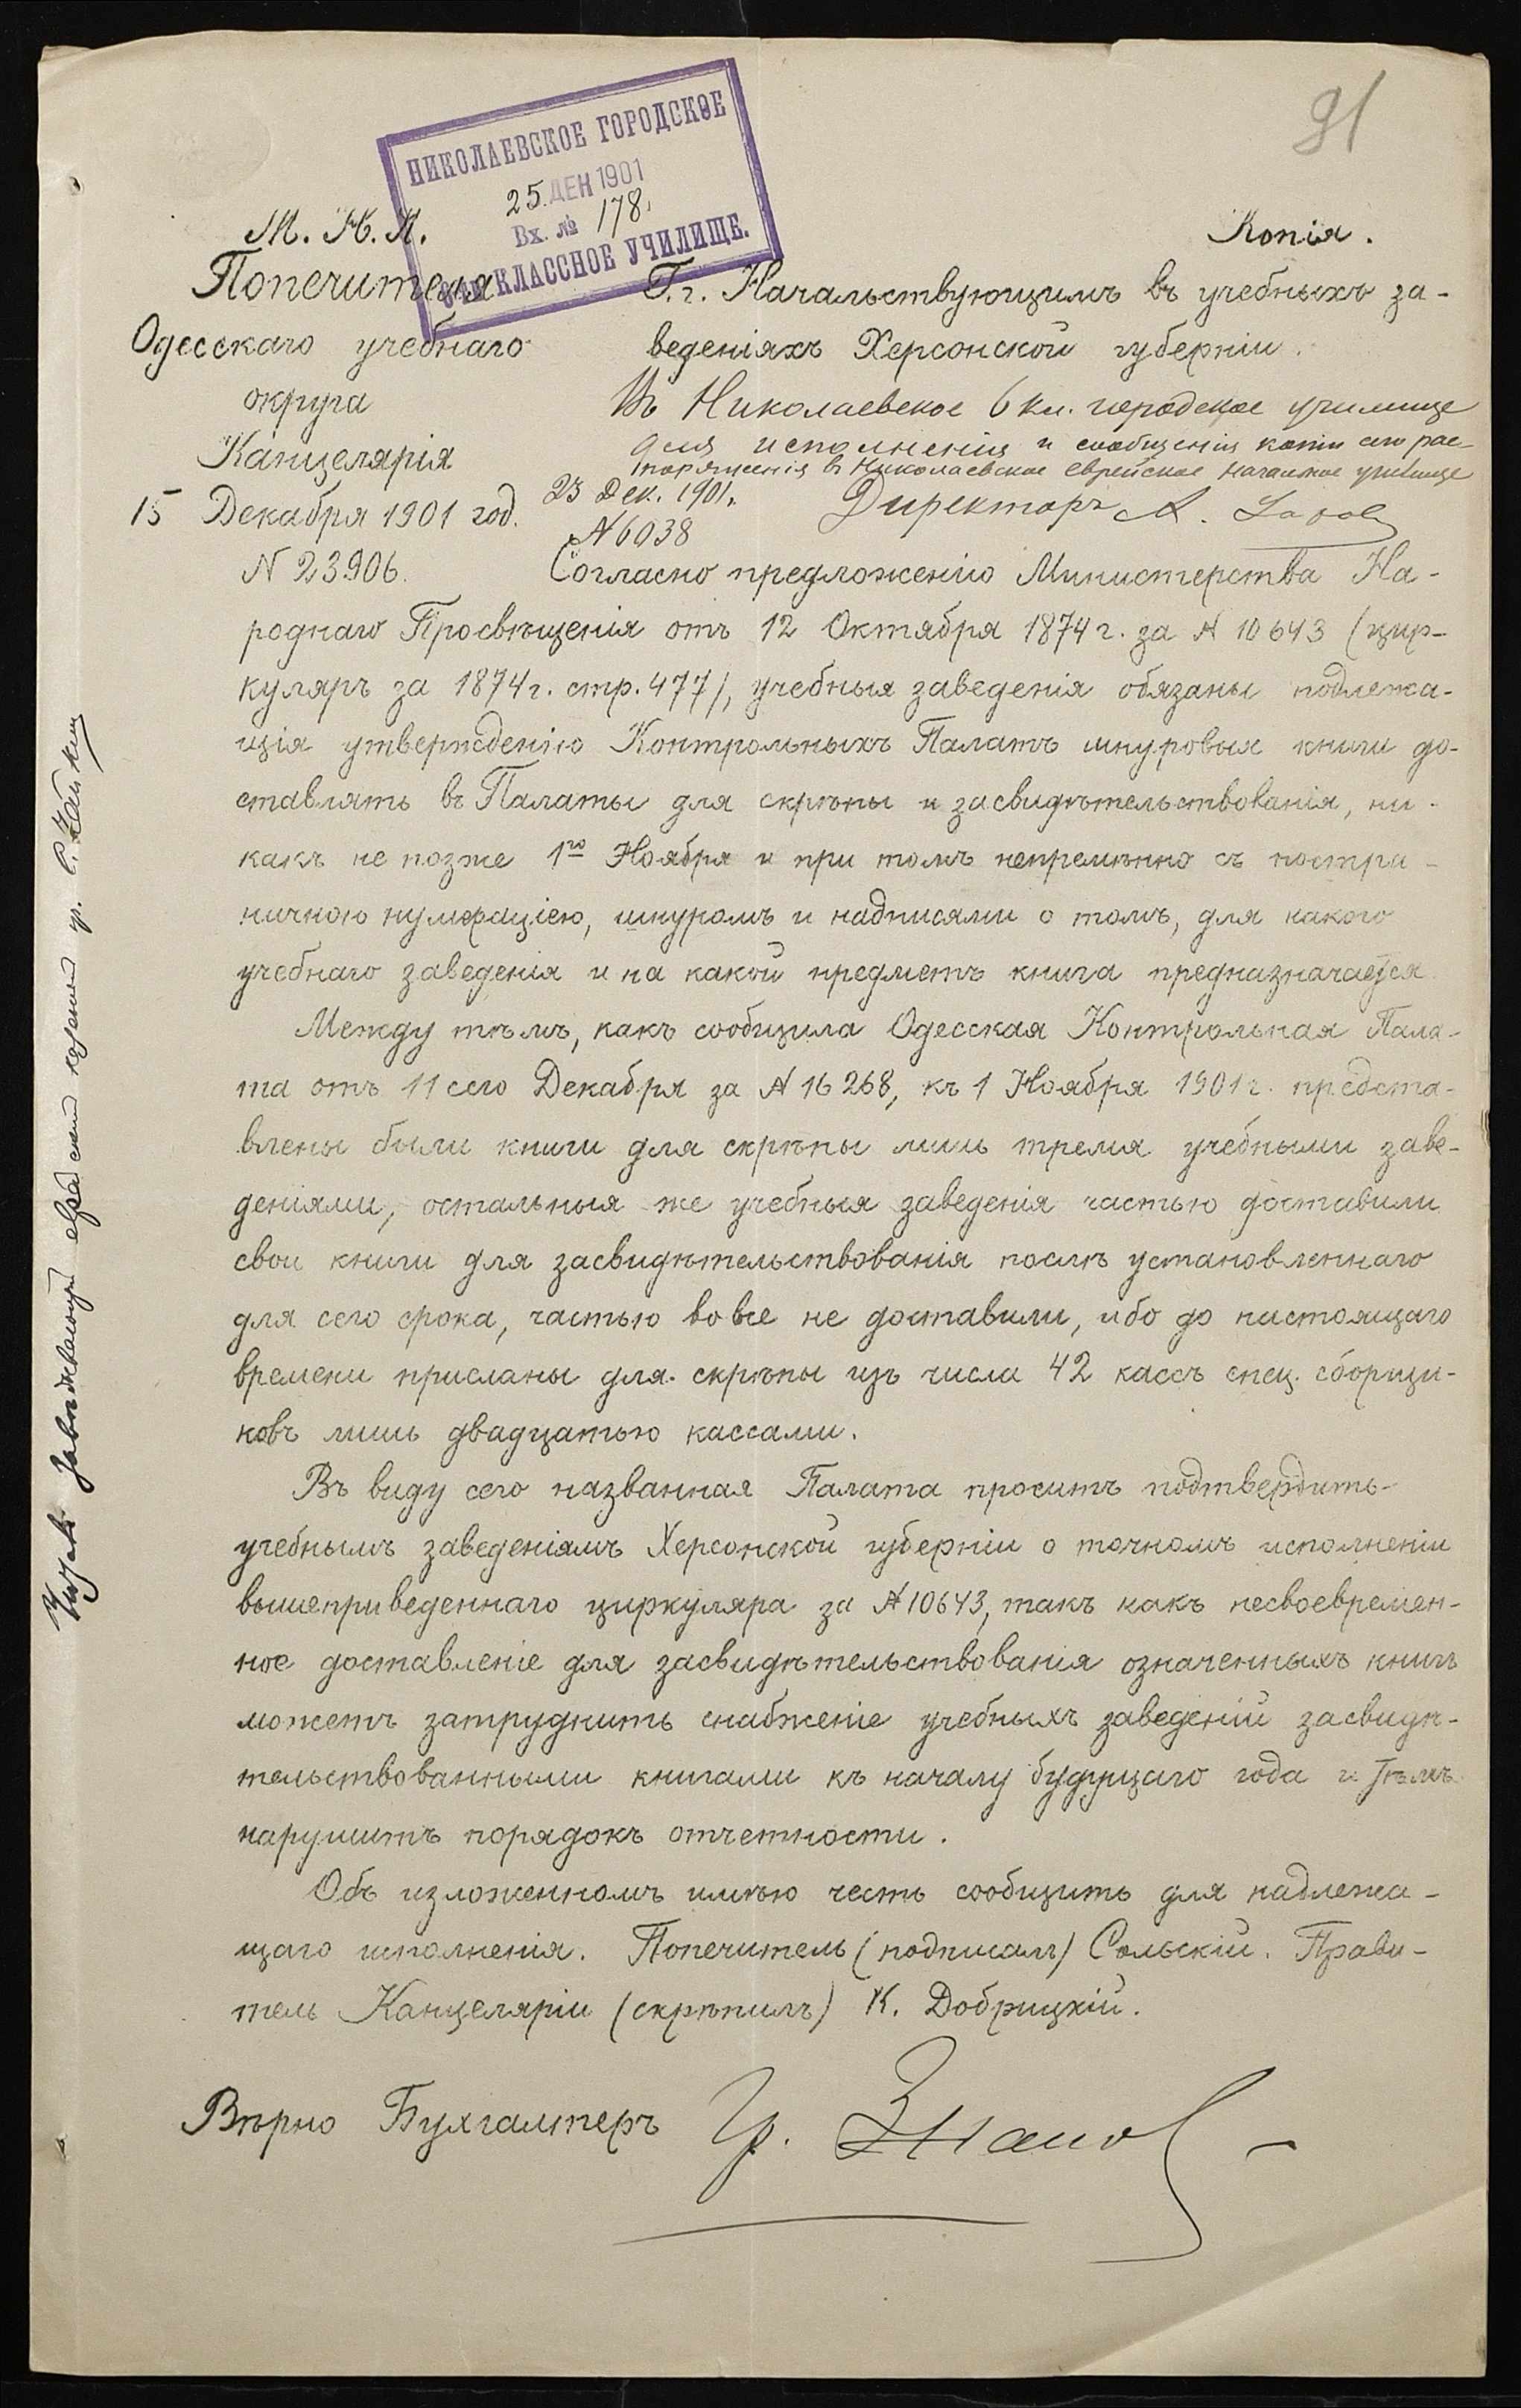 91
НИКОЛАЕВСКОЕ ГОРОДСКОЕ
25 ДЕК 1901
Вх. № 178.
КЛАССНОЕ УЧИЛИЩЕ.
М. Н. П.
Попечителя
Одесскаго учебнаго
округа
Канцелярія
15 Декабря 1901 год.
N 23906.
Копія.
Г.г. Начальствующимъ въ учебныхъ за-
веденіяхъ Херсонской губерніи.
Въ Николаевское 6 кл. городское училище
для исполненія и сообщенія копіи сего рас-
поряженія въ Николаевское еврейское начальное училище
23 Дек. 1901.
N 6038
Директоръ А.
Согласно предложенію Министерства На-
роднаго Просвѣщенія отъ 12 Октября 1874 г. за N 10643 (цир-
куляръ за 1874 г. стр. 477), учебныя заведенія обязаны подлежа-
щія утвержденію Контрольныхъ Палатъ шнуровыя книги до-
ставлять въ Палаты для скрѣпы и засвидѣтельствованія, ни-
какъ не позже 1го Ноября и при томъ непремѣнно съ постра-
ничною нумераціею, шнуромъ и надписями о томъ, для какого
учебнаго заведенія и на какой предметъ книга предназначается
Между тѣмъ, какъ сообщила Одесская Контрольная Пала-
та отъ 11 сего Декабря за N 16268, къ 1 Ноября 1901 г. предста-
влены были книги для скрѣпы лишь тремя учебными заве-
деніями, остальныя же учебныя заведенія частью доставили
свои книги для засвидѣтельствованія послѣ установленнаго
для сего срока, частью вовсе не доставили, ибо до настоящаго
времени присланы для скрѣпы изъ числа 42 кассъ спец. сборщи-
ковъ лишь двадцатью кассами.
Въ виду сего названная Палата проситъ подтвердить
учебнымъ заведеніямъ Херсонской губерніи о точномъ исполненіи
вышеприведеннаго циркуляра за N 10643, такъ какъ несвоевремен-
ное доставленіе для засвидѣтельствованія означенныхъ книгъ
можетъ затруднить снабженіе учебныхъ заведеній засвидѣ-
тельствованными книгами къ началу будущаго года и тѣмъ
нарушитъ порядокъ отчетности.
Объ изложенномъ имѣю честь сообщить для надлежа-
щаго исполненія. Попечитель (подписалъ) Сольскій. Прави-
тель Канцеляріи (скрѣпилъ) К. Добрицкій.
Вѣрно Бухгалтеръ
Завѣдывающій еврейскимъ